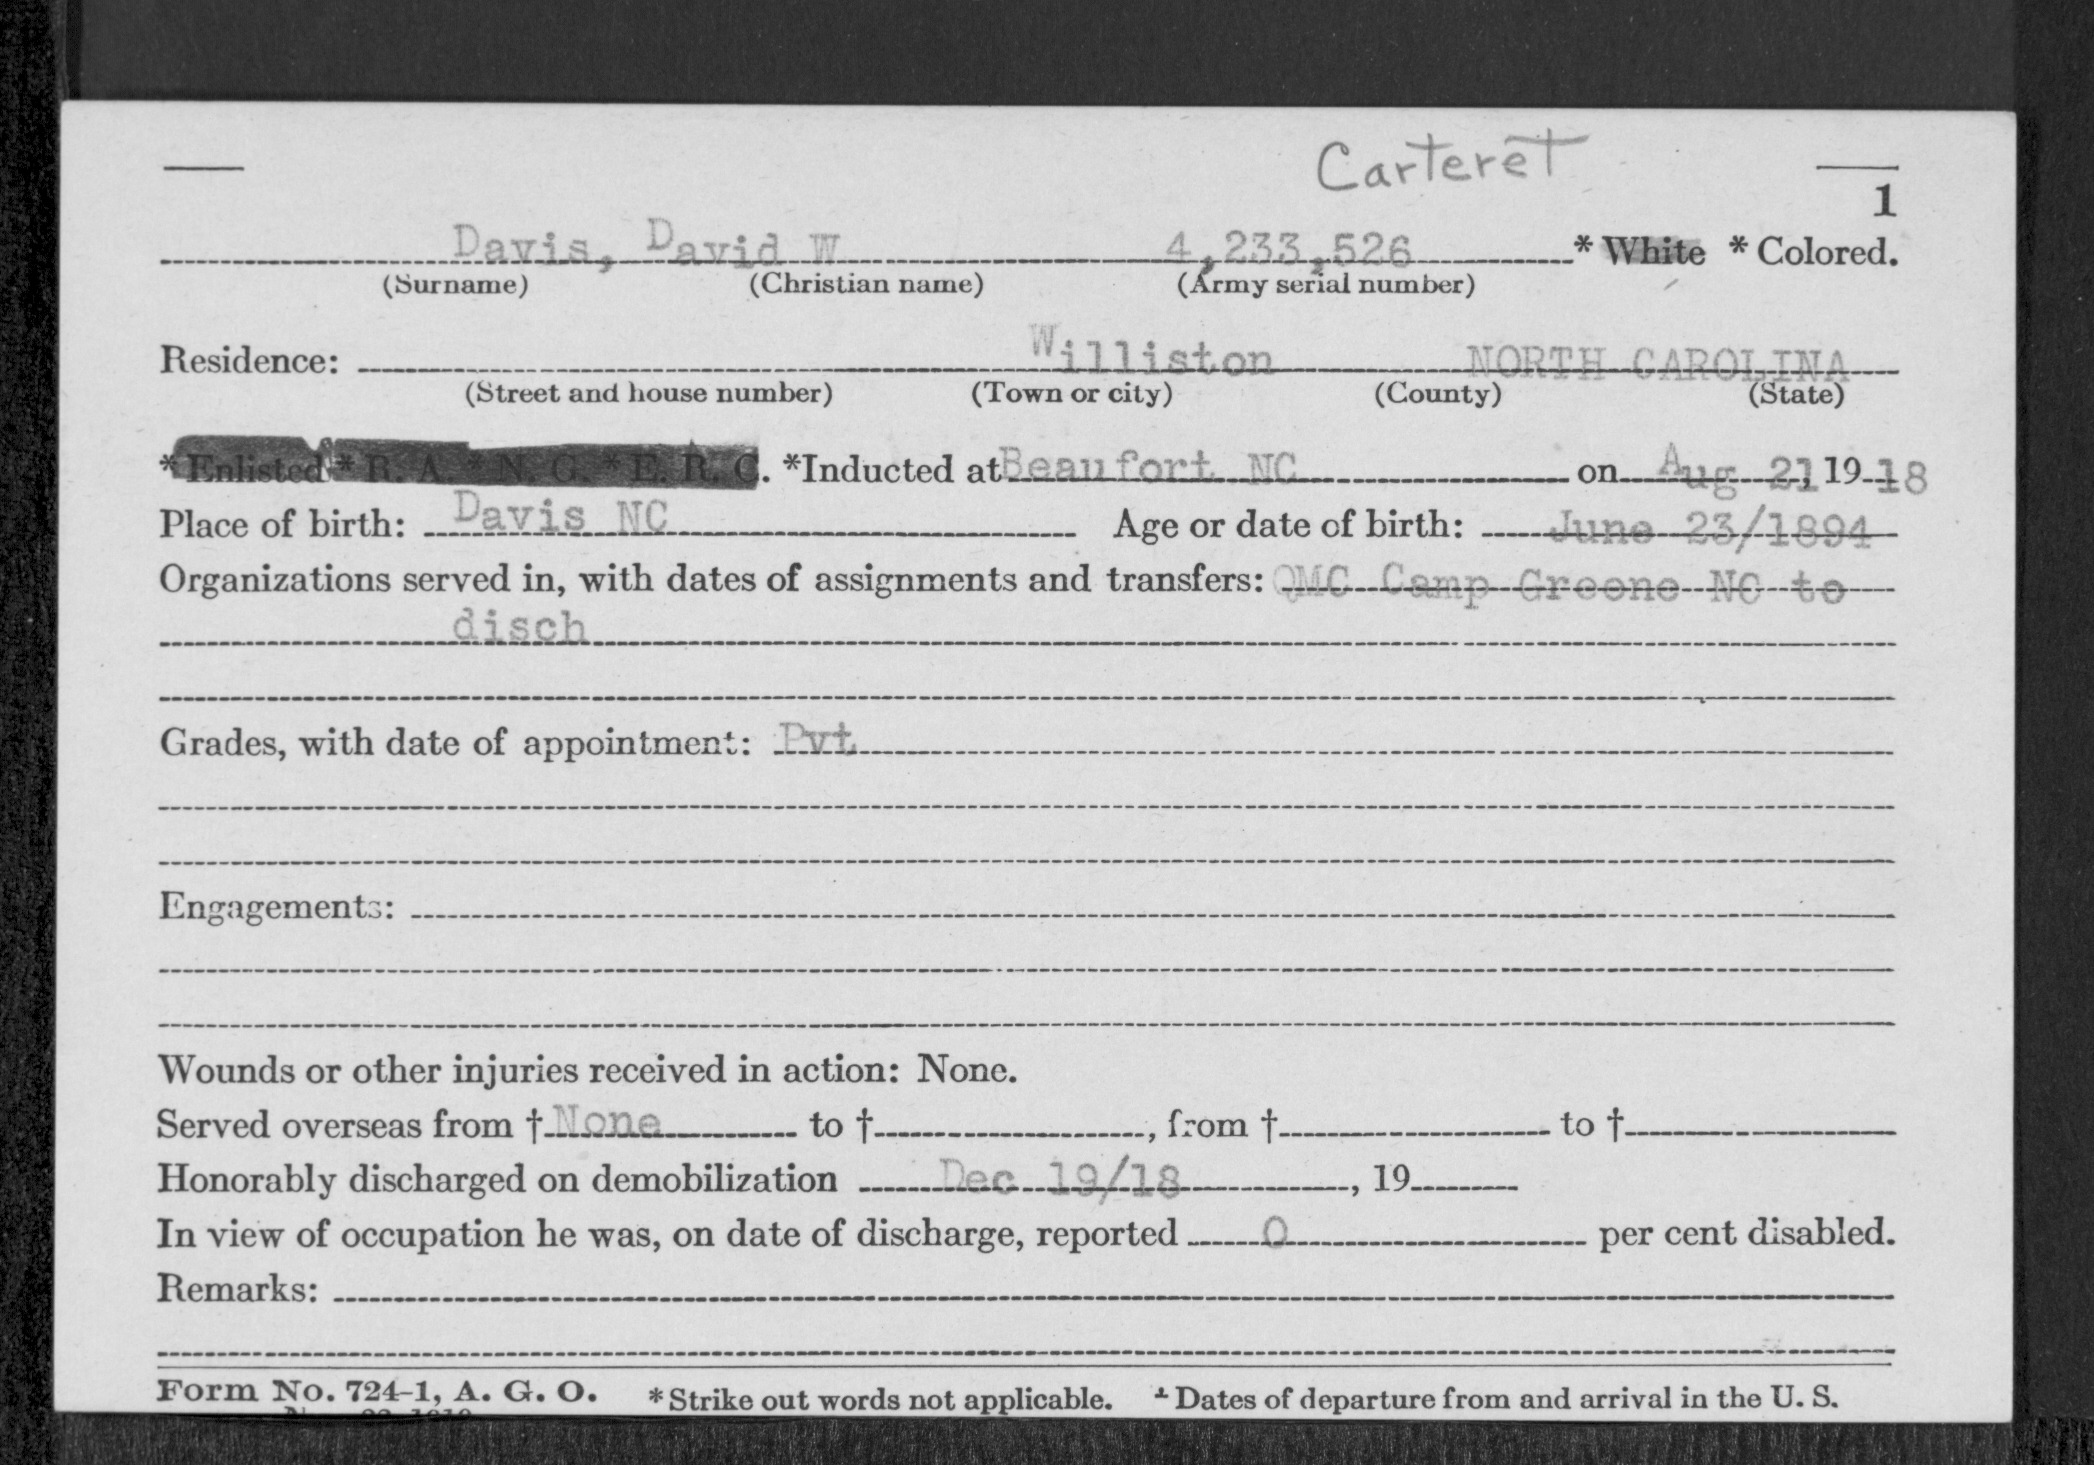 Carteret
1
Davis, David W 4,233,526 * White * Colored.
(Surname) (Christian name) (Army serial number)
Residence: Williston NORTH CAROLINA
(Street and house number) (Town or city) (County) (State)
* Enlisted * R. A. * N. G. * E. R. C. *Inducted at Beaufort NC on Aug 21, 19 18
Place of birth: Davis NC Age or date of birth: June 23/1894
Organizations served in, with dates of assignments and transfers: QMC Camp Greene NC to
disch
Grades, with date of appointment: Pvt
Engagements:
Wounds or other injuries received in action: None.
Served overseas from † None to †, from † to †
Honorably discharged on demobilization Dec 19/18, 19
In view of occupation he was, on date of discharge, reported 0 per cent disabled.
Remarks:
Form No. 724-1, A. G. O. * Strike out words not applicable. † Dates of departure from and arrival in the U. S.